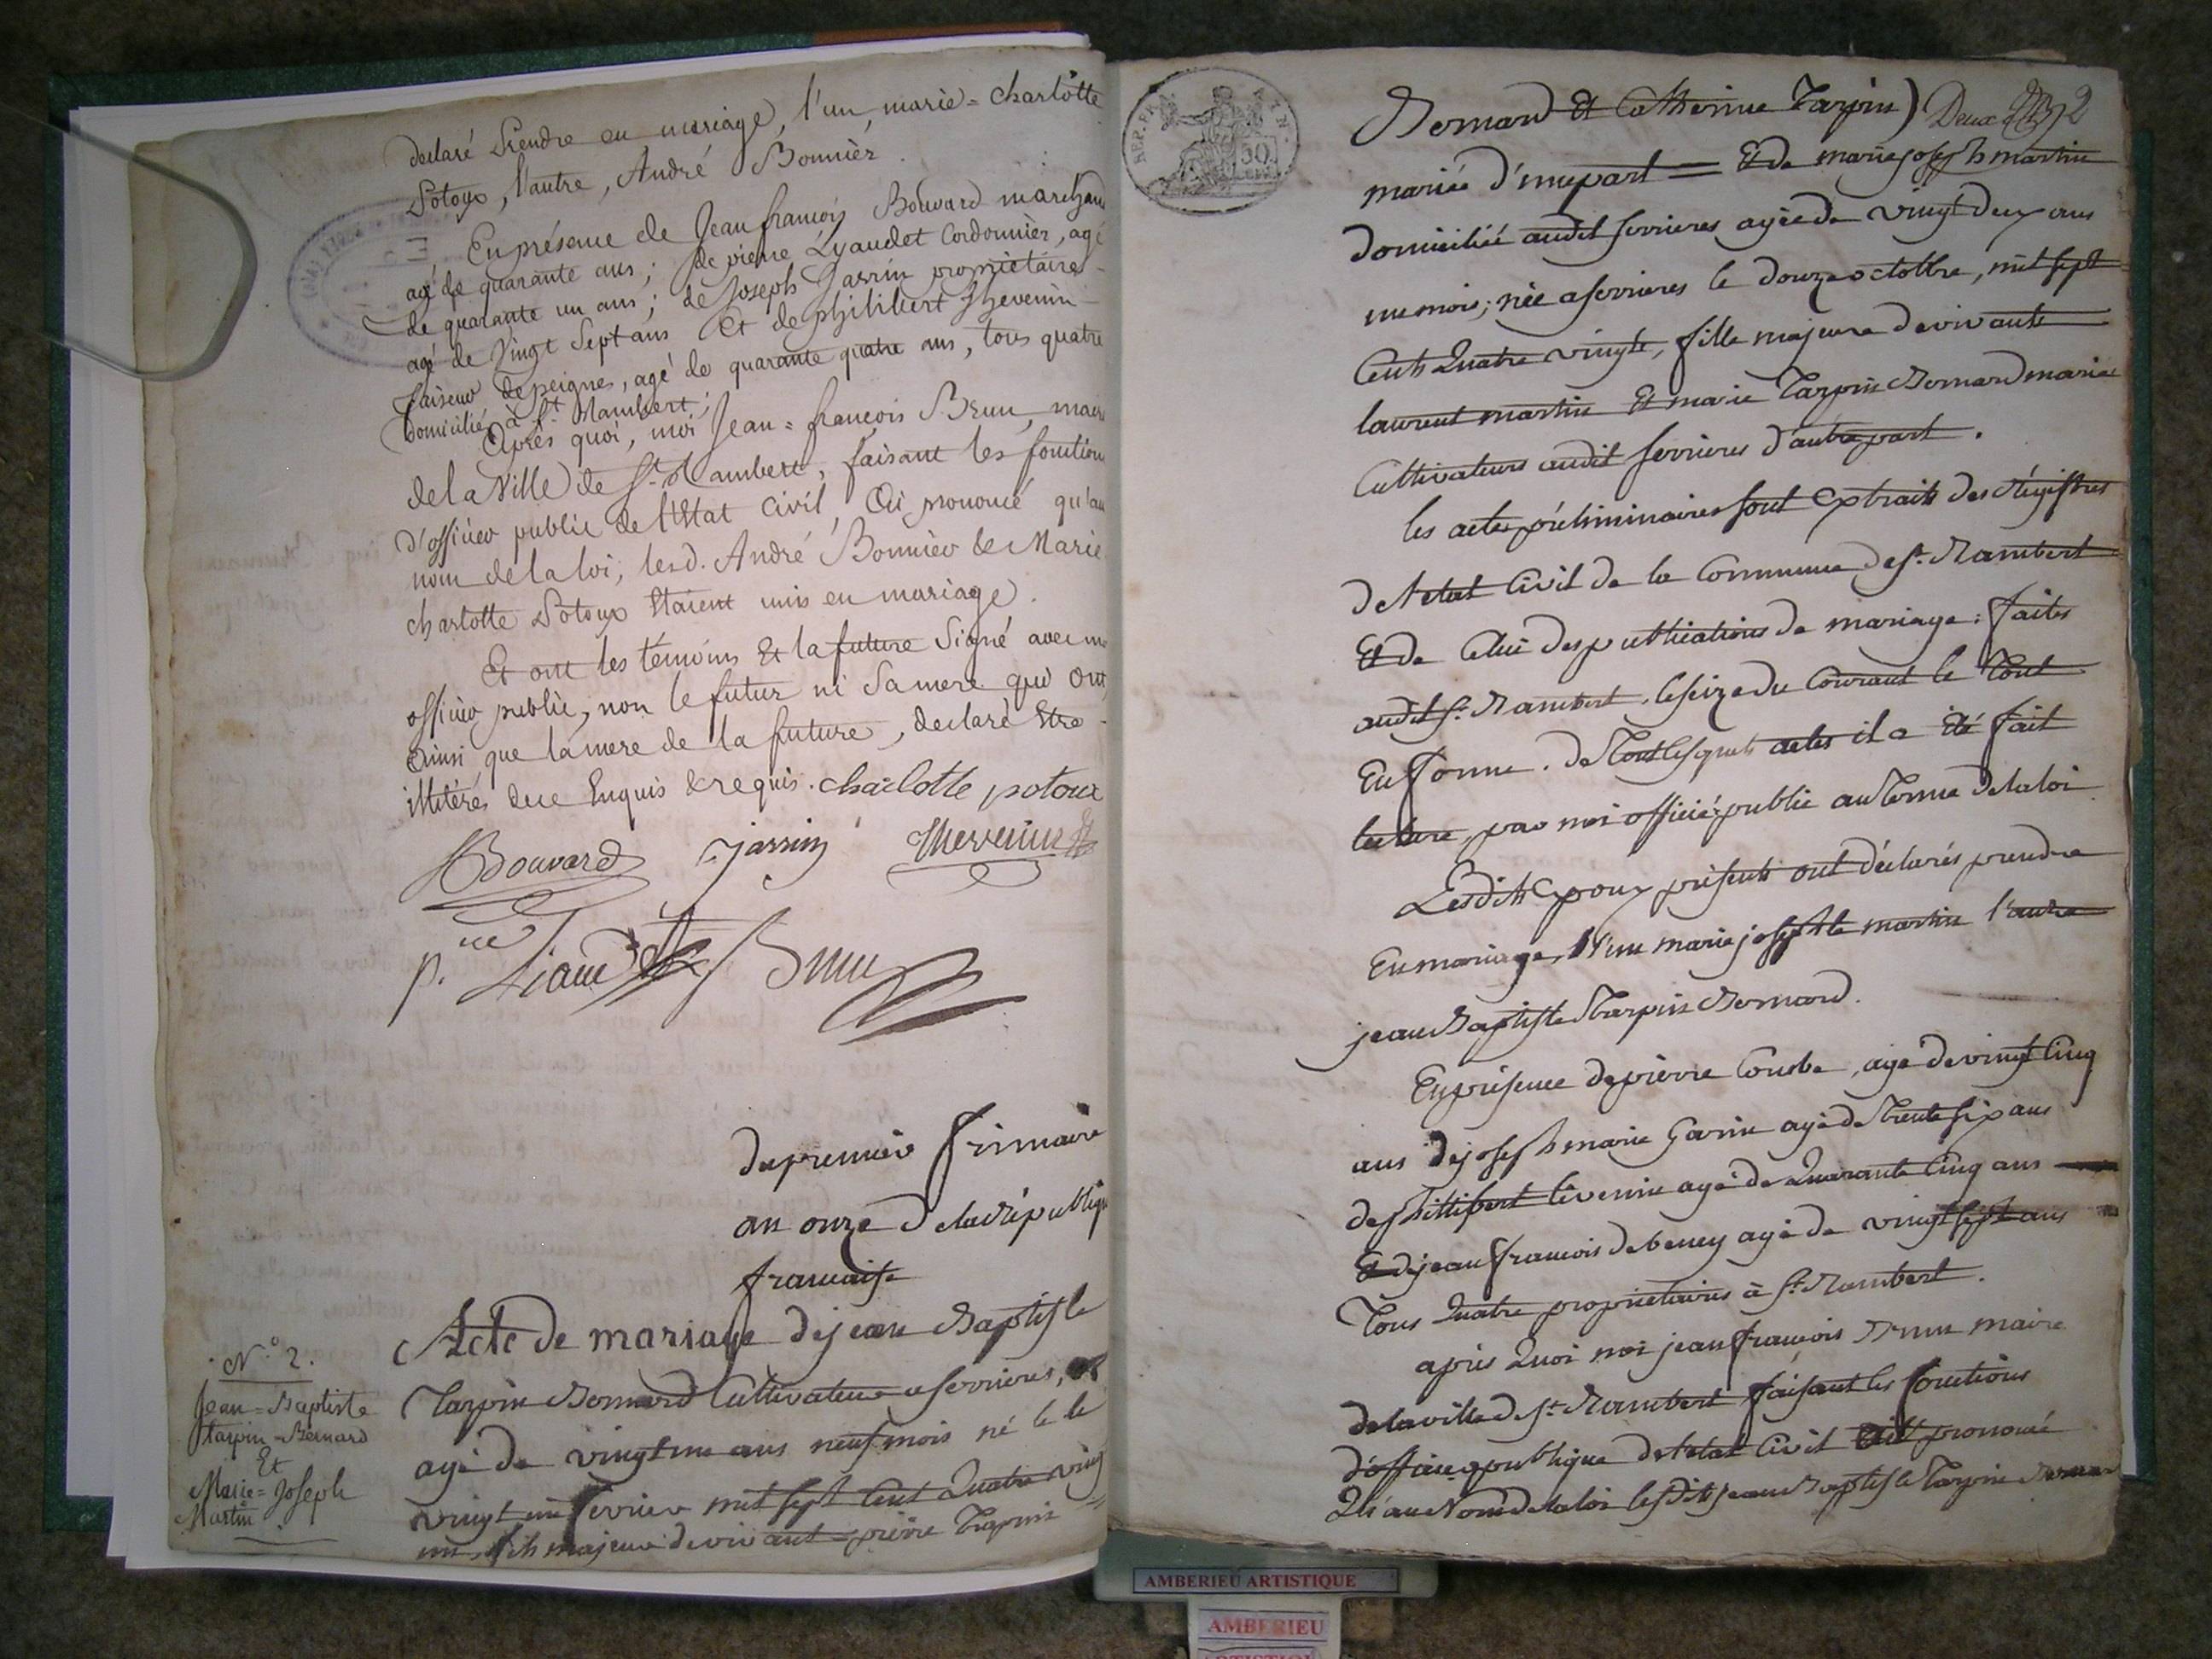 declaré Prendre en mariage, l'un, marie=charlotte
Potoux, l'autre, André Bonnier.
En présence de Jean françois Bouvard marchand
agé de quarante ans; de pierre Lyaudet Cordonnier, agé
de quarante un ans; de Joseph Jarrin propriétaire
agé de Vingt Sept ans Et de philibert Thevenin
faiseur de peignes, agé de quarante quatre ans, tous quatre
Domiciliés à St. Rambert;
Après quoi, moi Jean=françois Brun, maire
de la Ville de St. Rambert, faisant les fonctions
d'officier public de l'Etat Civil, Ai prononcé qu'au
nom de la loi, lesd. André Bonnier & Marie
charlotte Potoux Etaient unis en mariage.
Et ont les témoins Et la future Signé avec moi
officier public, non le futur ni Sa mere qui ont,
ainsi que la mere de la future, declaré Etre
illiterés de ce Enquis & requis. charlotte potoux
Bouvard Jarrin Thevenin
p.re Liaudet Brun
du premier frimaire
an onze de la République
francaise
N.o 2.
Jean=Baptiste
tarpin=Bernard
Et
Marie=Joseph
Martin
Acte de mariage de jean Baptiste
Tarpin Bernard Cultivateur a serrieres,
agé de vingt un ans neuf mois né le
vingt un fevrier mil sept Cent Quatre vingt
un, fils majeur de vivant pierre Tarpin=
REP. FRA.
50
Bernard Et Catherine Tarpin) Deux 2
mariée d'une part = Et de marie joseph martin
domiciliée audit serrieres agée de vingt deux ans
un mois; née a serrieres le douze octobre, mil sept
Cents Quatre vingts, fille majeure de vivants
laurent martin Et marie Tarpin Bernard mariés
Cultivateurs audit serrieres d'autre part.
les actes préliminaires sont Extraits des Régistres
de l'etat Civil de la Commune de St. Rambert
Et de Celui des publications de mariage: faites
audit St. Rambert, le seize du Courant le Tout
En forme. de Tout lesquels actes il a Eté fait
lecture, par moi officié public au Terme de la loi
Lesdits Epoux présents ont déclarés prendre
En mariage, l'un marie josephte martin l'autre
jean Baptiste Tarpin Bernard.
En présence de pierre Courbe, agé de vingt Cinq
ans de joseph marie Garin agé de Trente six ans
de phillibert tévenin agé de Quarante Cinq ans
Et de jean francois debeney agé de vingt sept ans
Tous Quatre propriétaires à St. Rambert.
après Quoi moi jean francois Brun maire
de la ville de St. Rambert faisant les fonctions
d'officié publique de l'etat Civil ait prononcé
Qu'au Nom de la loi lesdits jean Baptiste Tarpin Bernar
AMBERIEU ARTISTIQUE
AMBERIEU
ARTISTIQUE